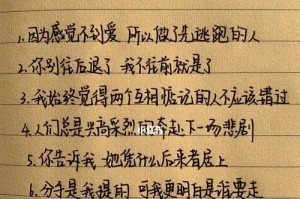 1.因为感觉不到爱 所以做了先逃跑的人
2.你别往后退了 我不往前就是了
3.我始终觉得两个互相惦记的人不应该错过
4.人们总是兴高采烈的奔赴下一场悲剧
5.你告诉我 她凭什么后来者居上
6.分手是我提的 可我更明白是谁要走